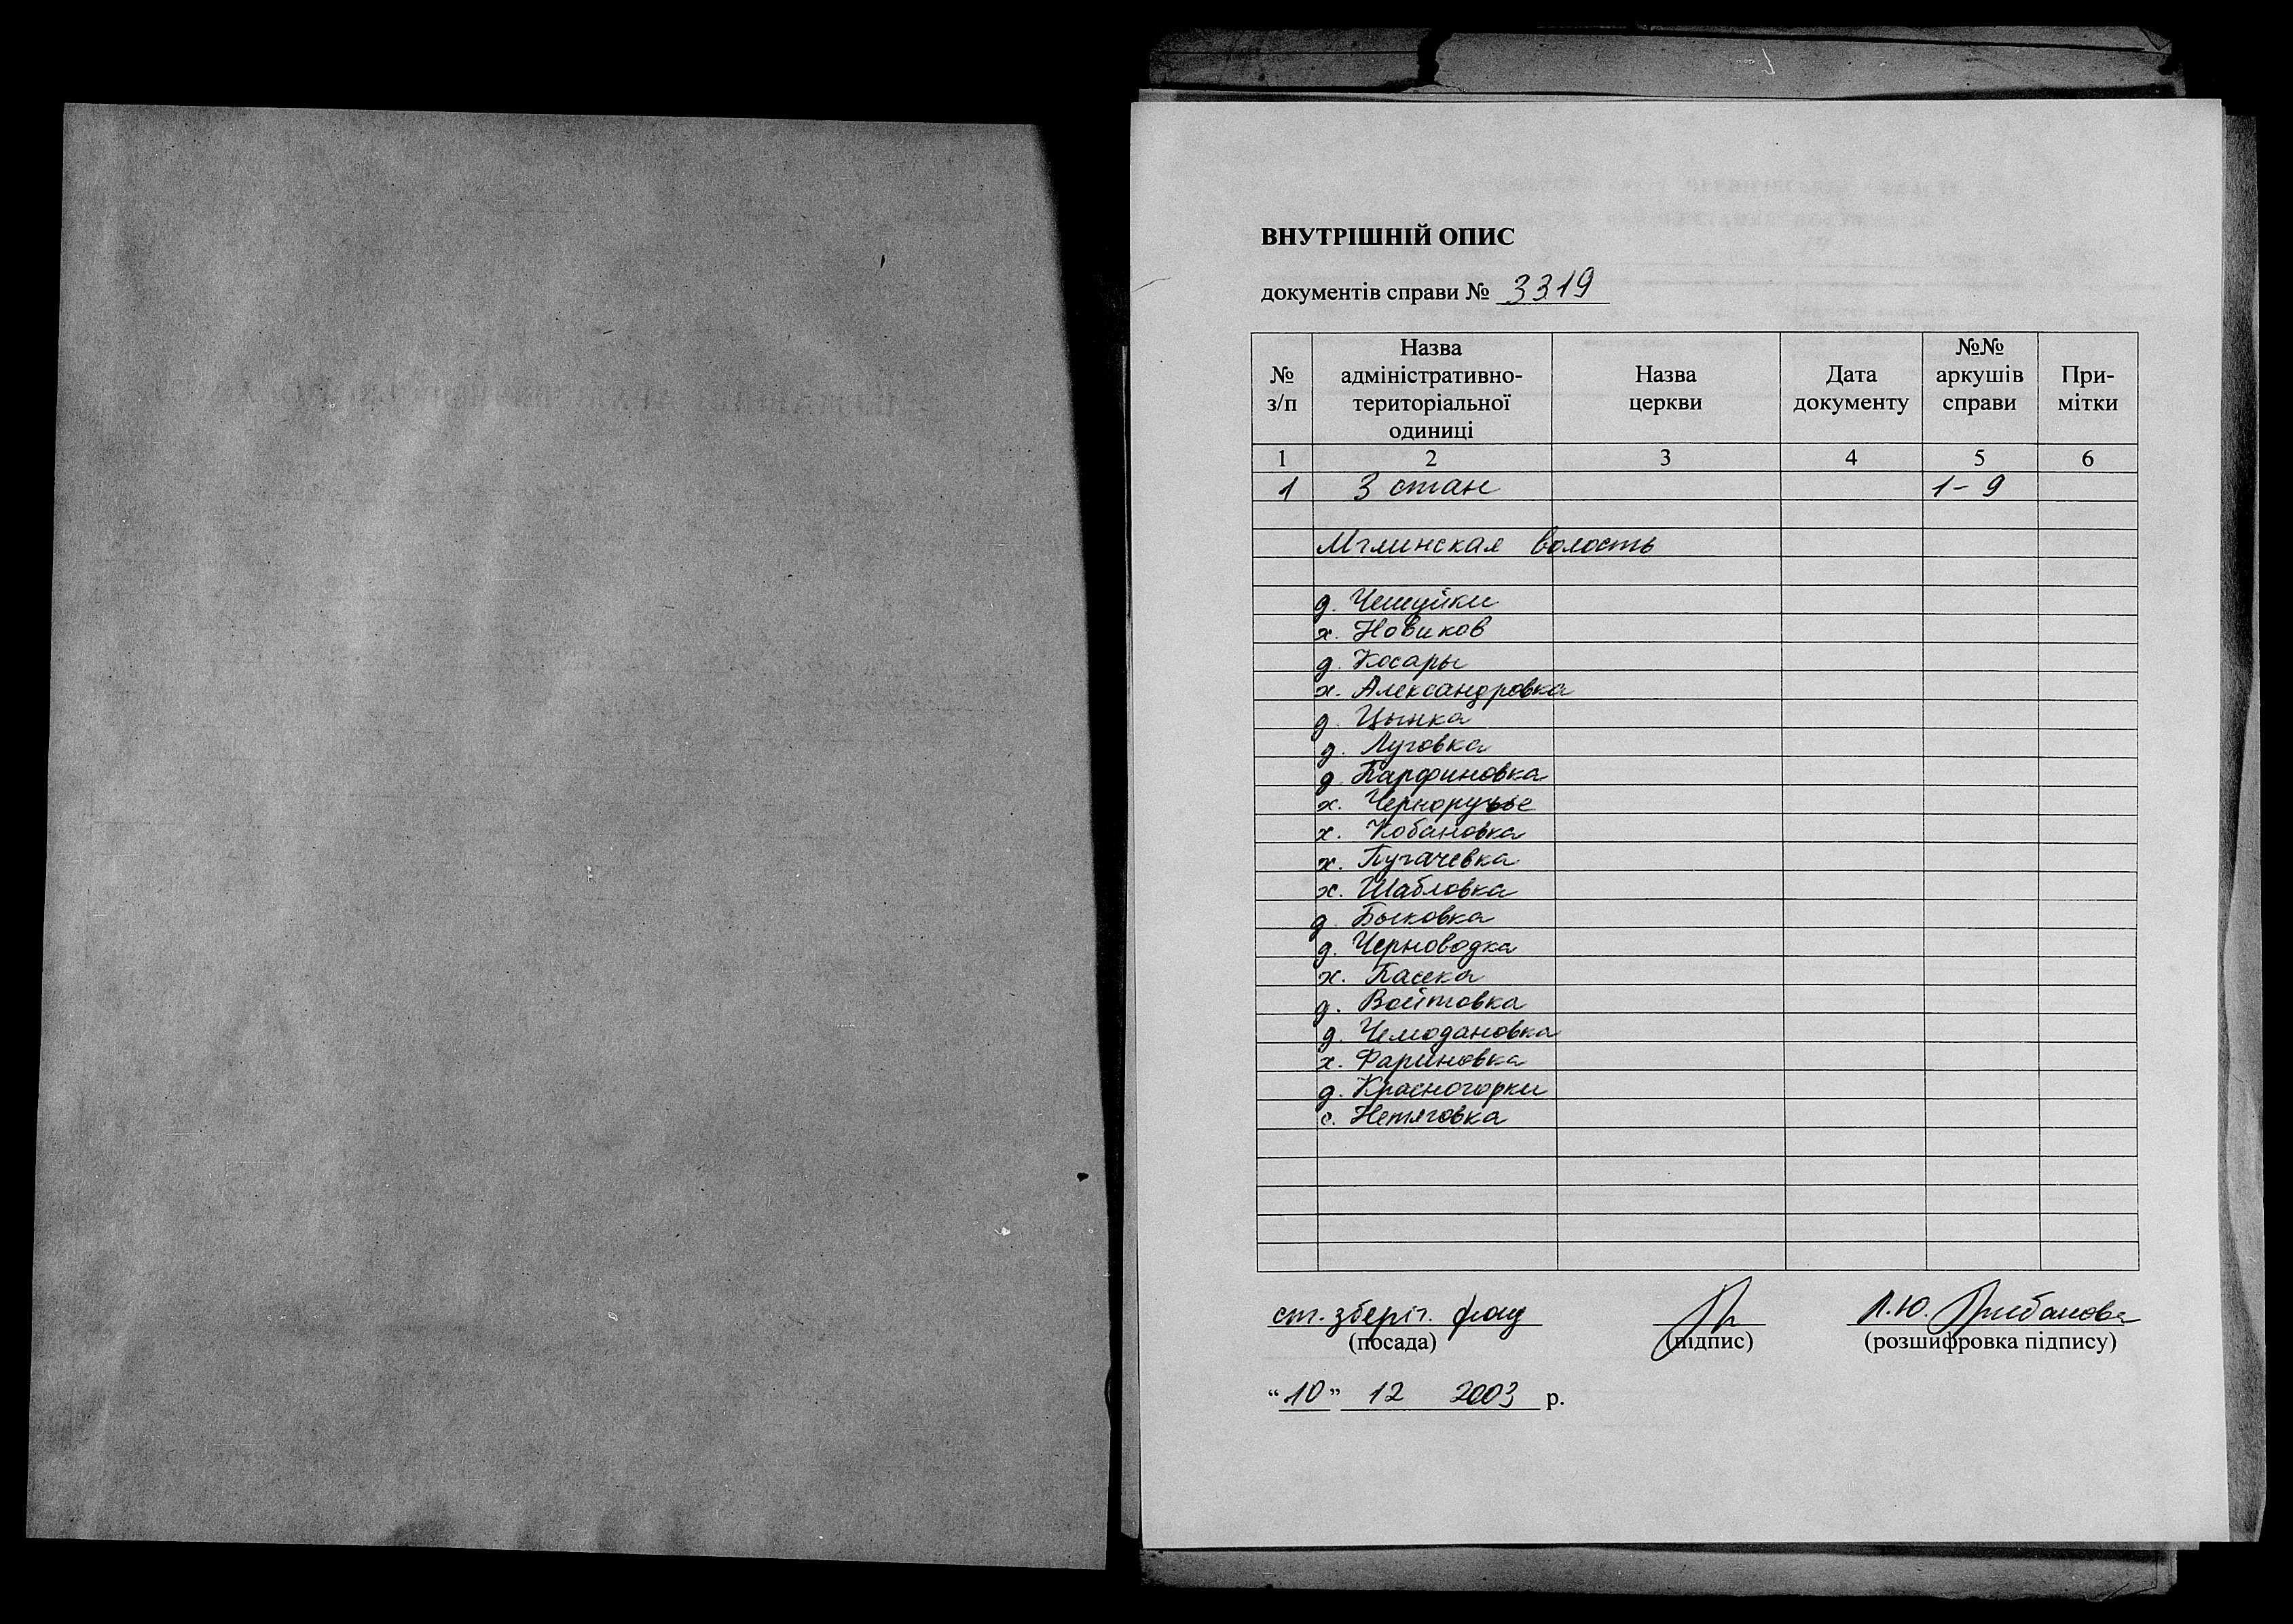 ВНУТРІШНІЙ ОПИС
документів справи № 3319
№ з/п
Назва адміністративно-територіальної одиниці
Назва церкви
Дата документу
№№ аркушів справи
При-мітки
1 2 3 4 5 6
1 3 стан 1-9
Мглинская волость
д. Чешуйки
х. Новиков
д. Косары
х. Александровка
д. Цынка
д. Луговка
д. Парфиновка
х. Черноручье
х. Кобановка
х. Пугачевка
х. Шабловка
д. Быковка
д. Черноводка
х. Пасека
д. Войтовка
д. Чемодановка
х. Фариновка
д. Красногорки
с. Нетяговка
ст. зберіг. фонд Л.Ю.
(посада) (підпис) (розшифровка підпису)
“10” 12 2003 р.